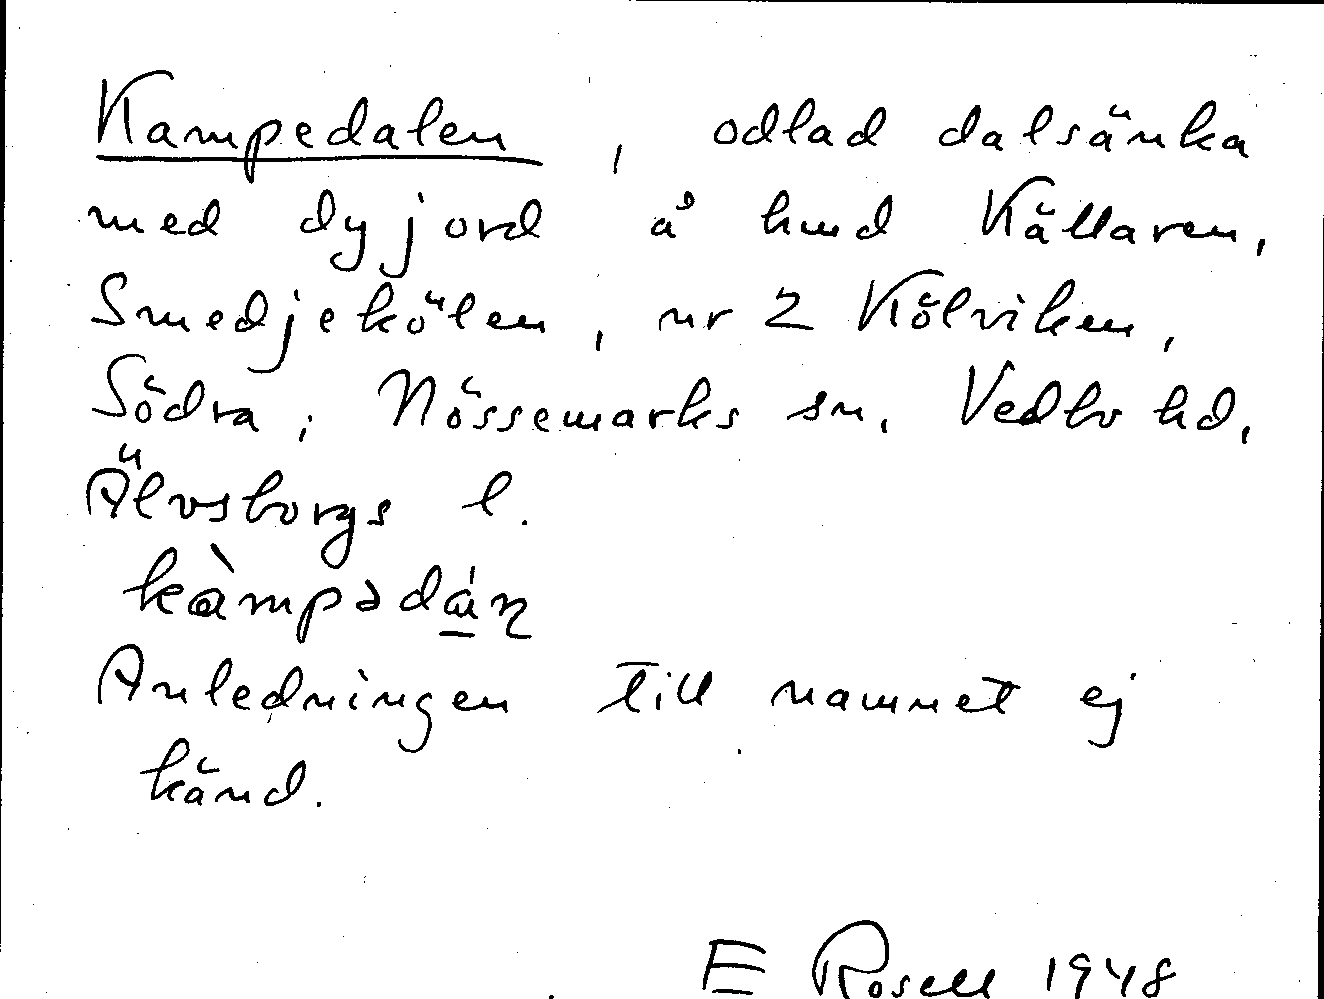 Kampedalen, odlad dalsänka
med dyjord å hmd Källaren,
Smedjekölen, nr 2 Kölviken,
Södra, Nössemarks sn, Vedbo hd,
Älvsborgs l.
kàmpədán
Anledningen till namnet ej
känd.
E Rosell 1948